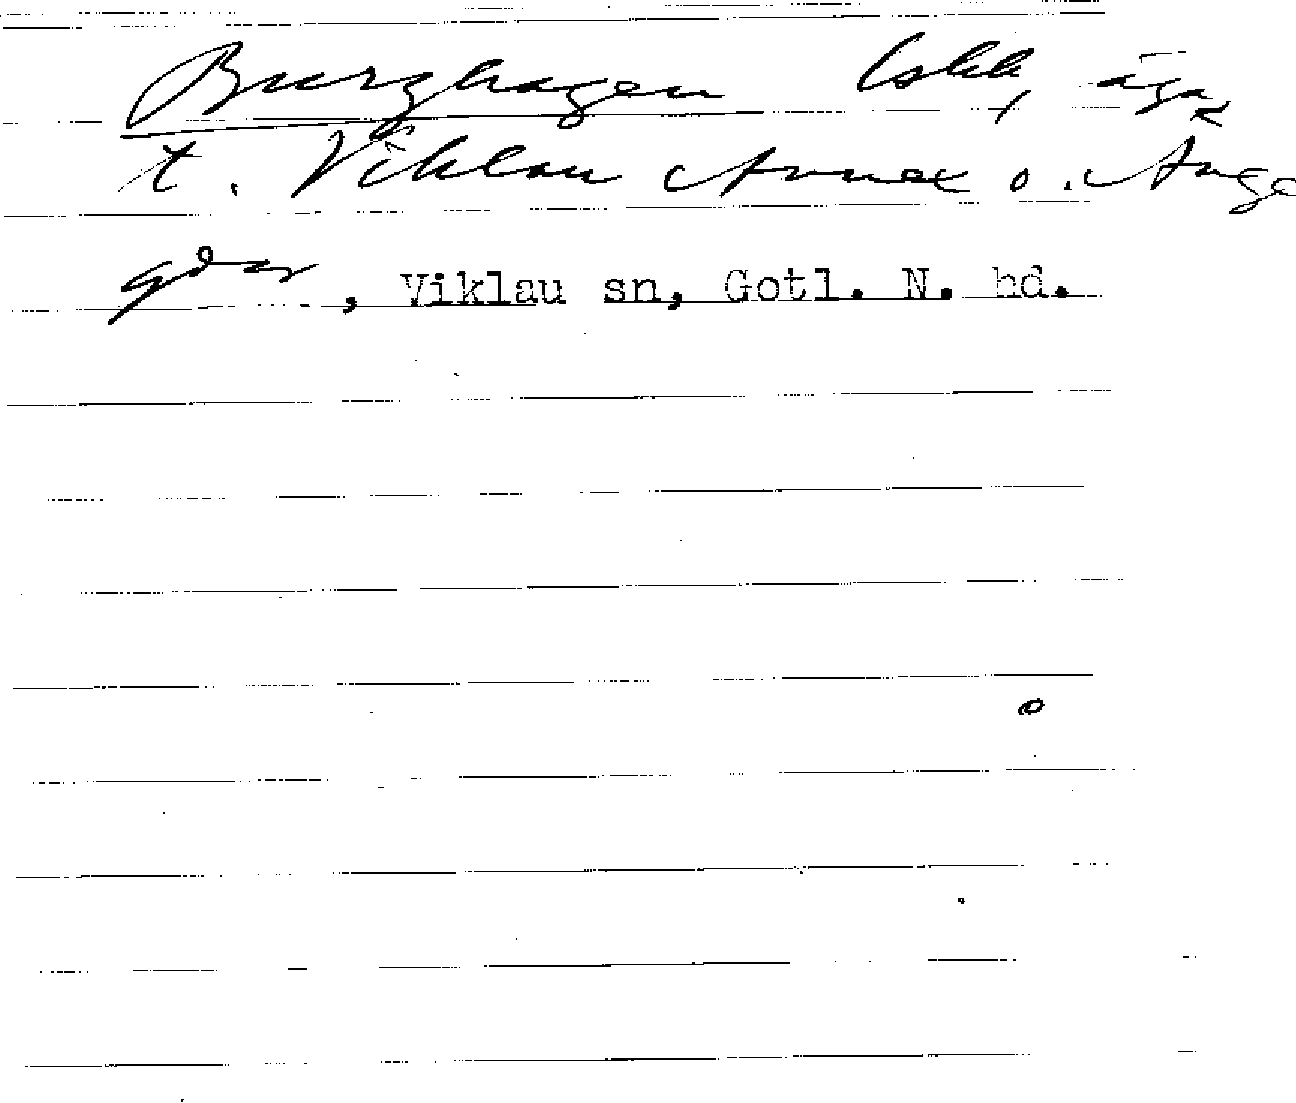 Burghagen Color, ägor
t. Viklau Annex o. Ange
gdar, Viklau sn, Gotl. N. hd.